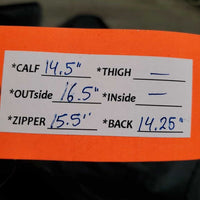 *CALF 14.5" *THIGH —
*OUTside 16.5" *INside —
*ZIPPER 15.5" *BACK 14.25"